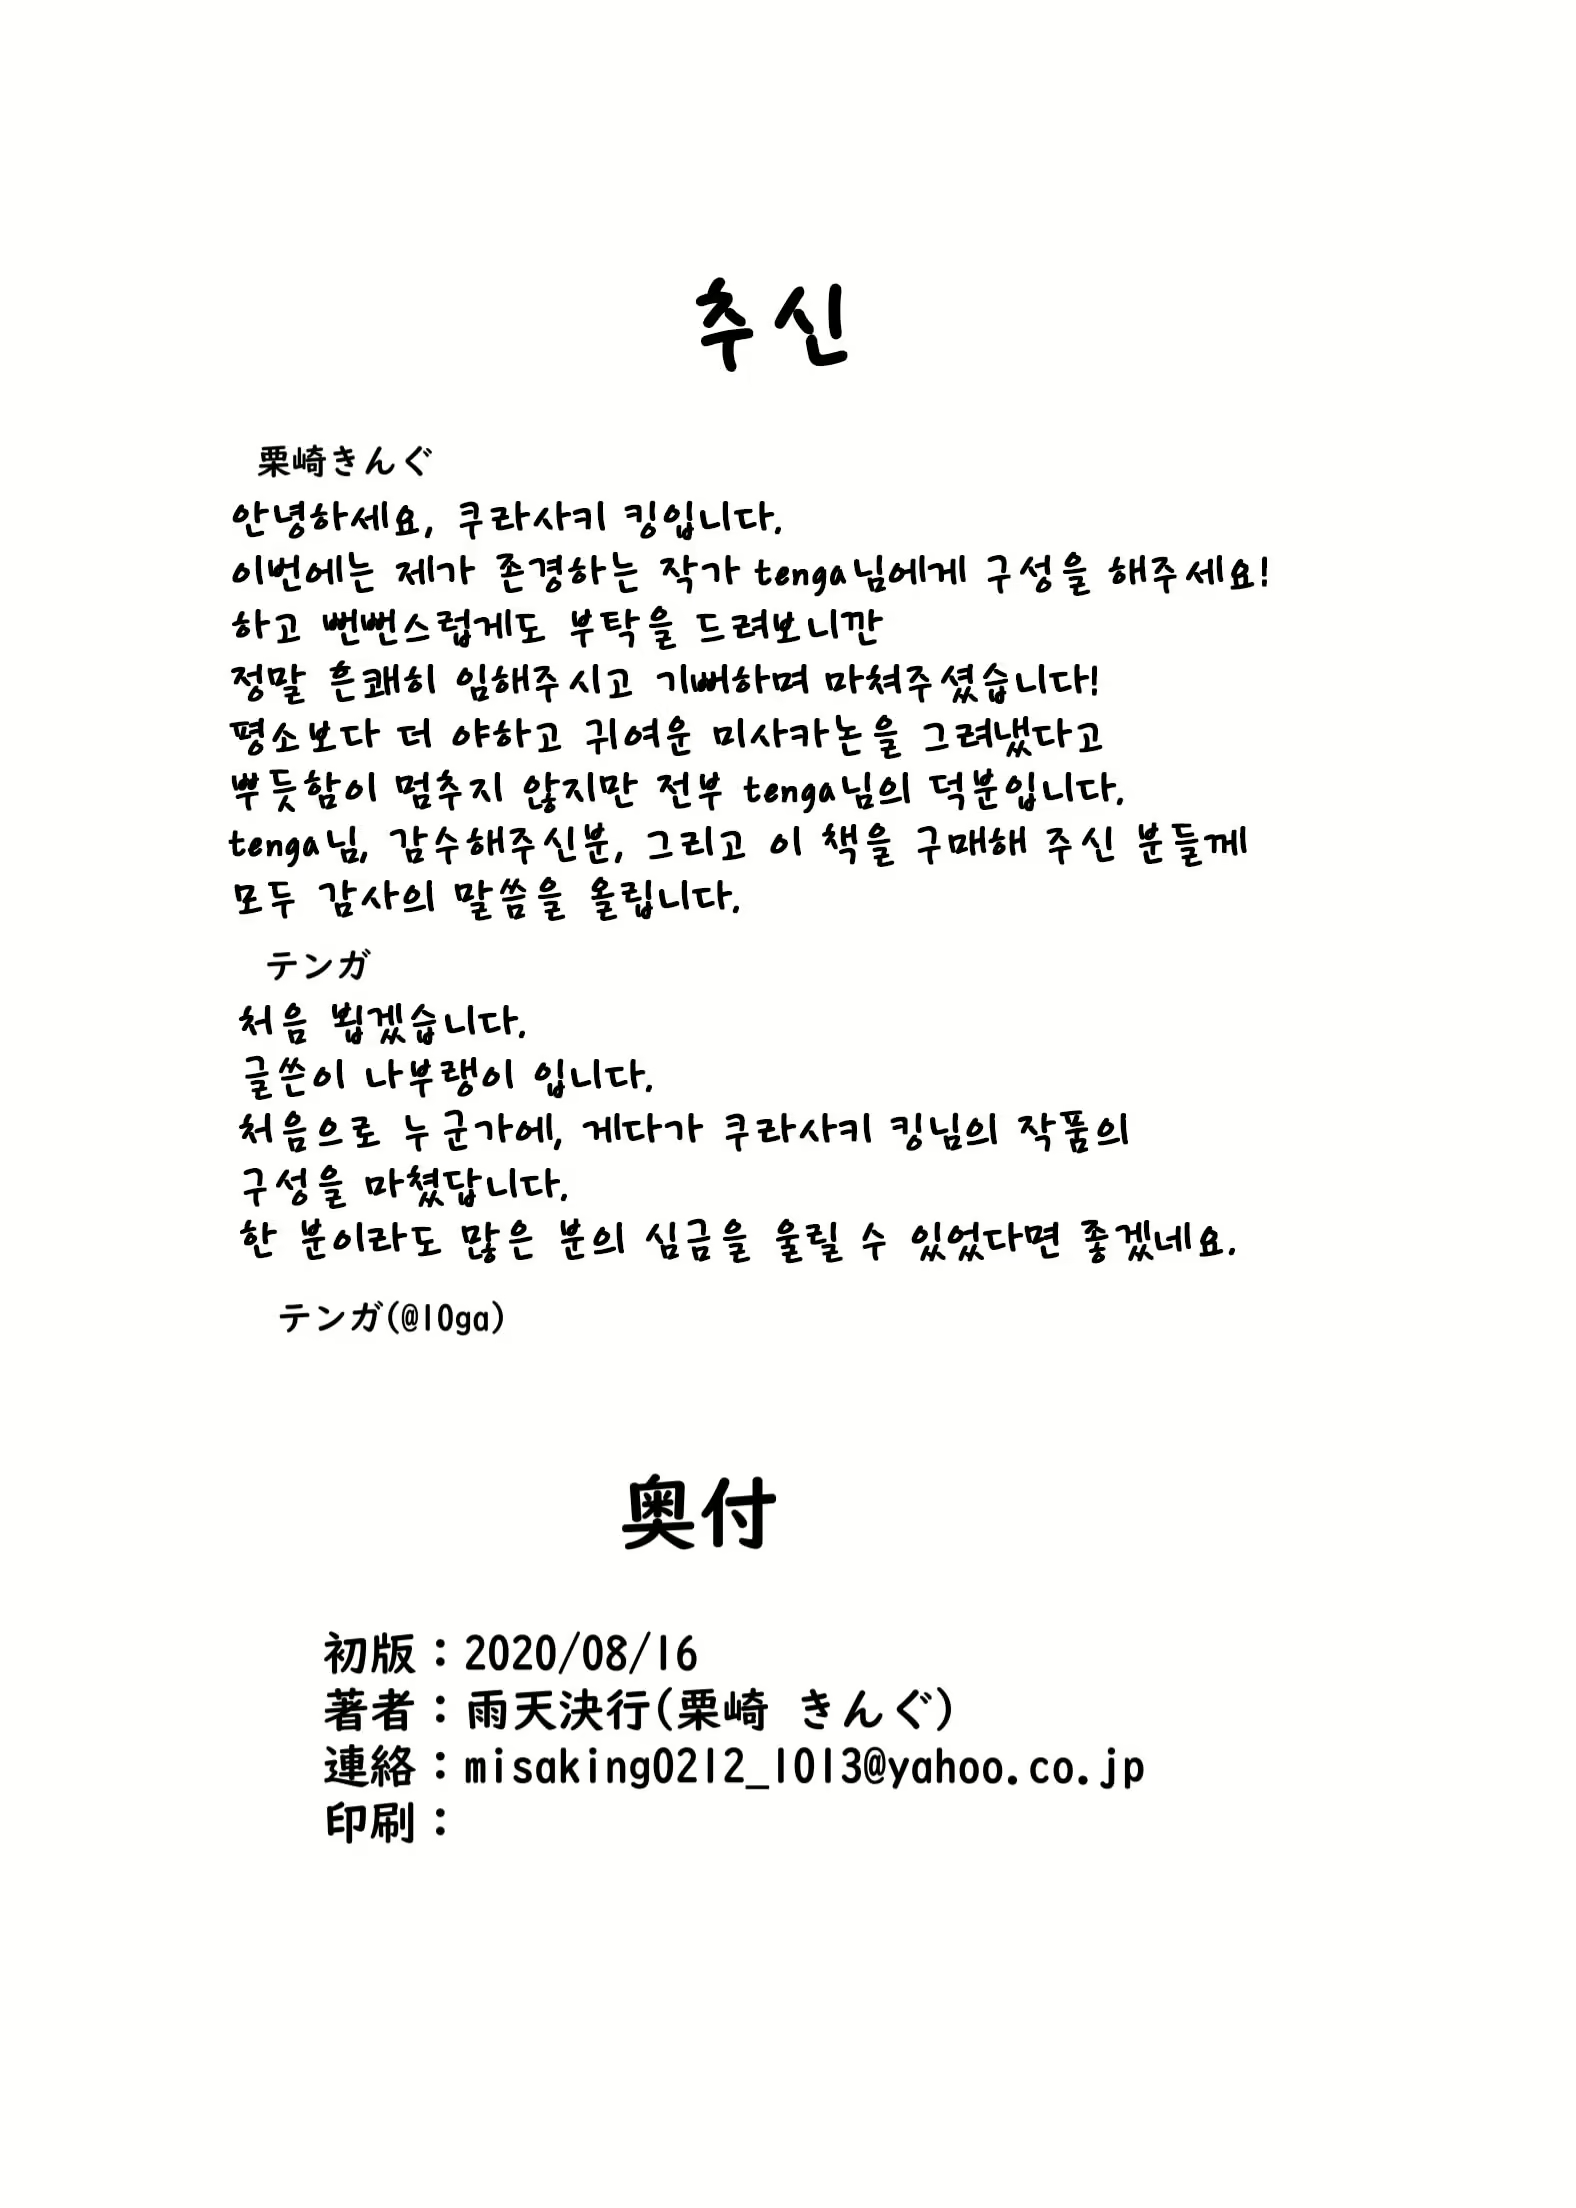 추신
栗崎きんぐ
안녕하세요, 쿠라사키 킹입니다.
이번에는 제가 존경하는 작가 tenga님에게 구성을 해주세요!
하고 뻔뻔스럽게도 부탁을 드려보니깐
정말 흔쾌히 임해주시고 기뻐하며 마쳐주셨습니다!
평소보다 더 야하고 귀여운 미사카논을 그려냈다고
뿌듯함이 멈추지 않지만 전부 tenga님의 덕분입니다.
tenga님, 감수해주신분, 그리고 이 책을 구매해 주신 분들께
모두 감사의 말씀을 올립니다.
テンガ
처음 뵙겠습니다.
글쓴이 나부랭이 입니다.
처음으로 누군가에, 게다가 쿠라사키 킹님의 작품의
구성을 마쳤답니다.
한 분이라도 많은 분의 심금을 울릴 수 있었다면 좋겠네요.
テンガ(@10ga)
奥付
初版：2020/08/16
著者：雨天決行(栗崎 きんぐ)
連絡：misaking0212_1013@yahoo.co.jp
印刷：